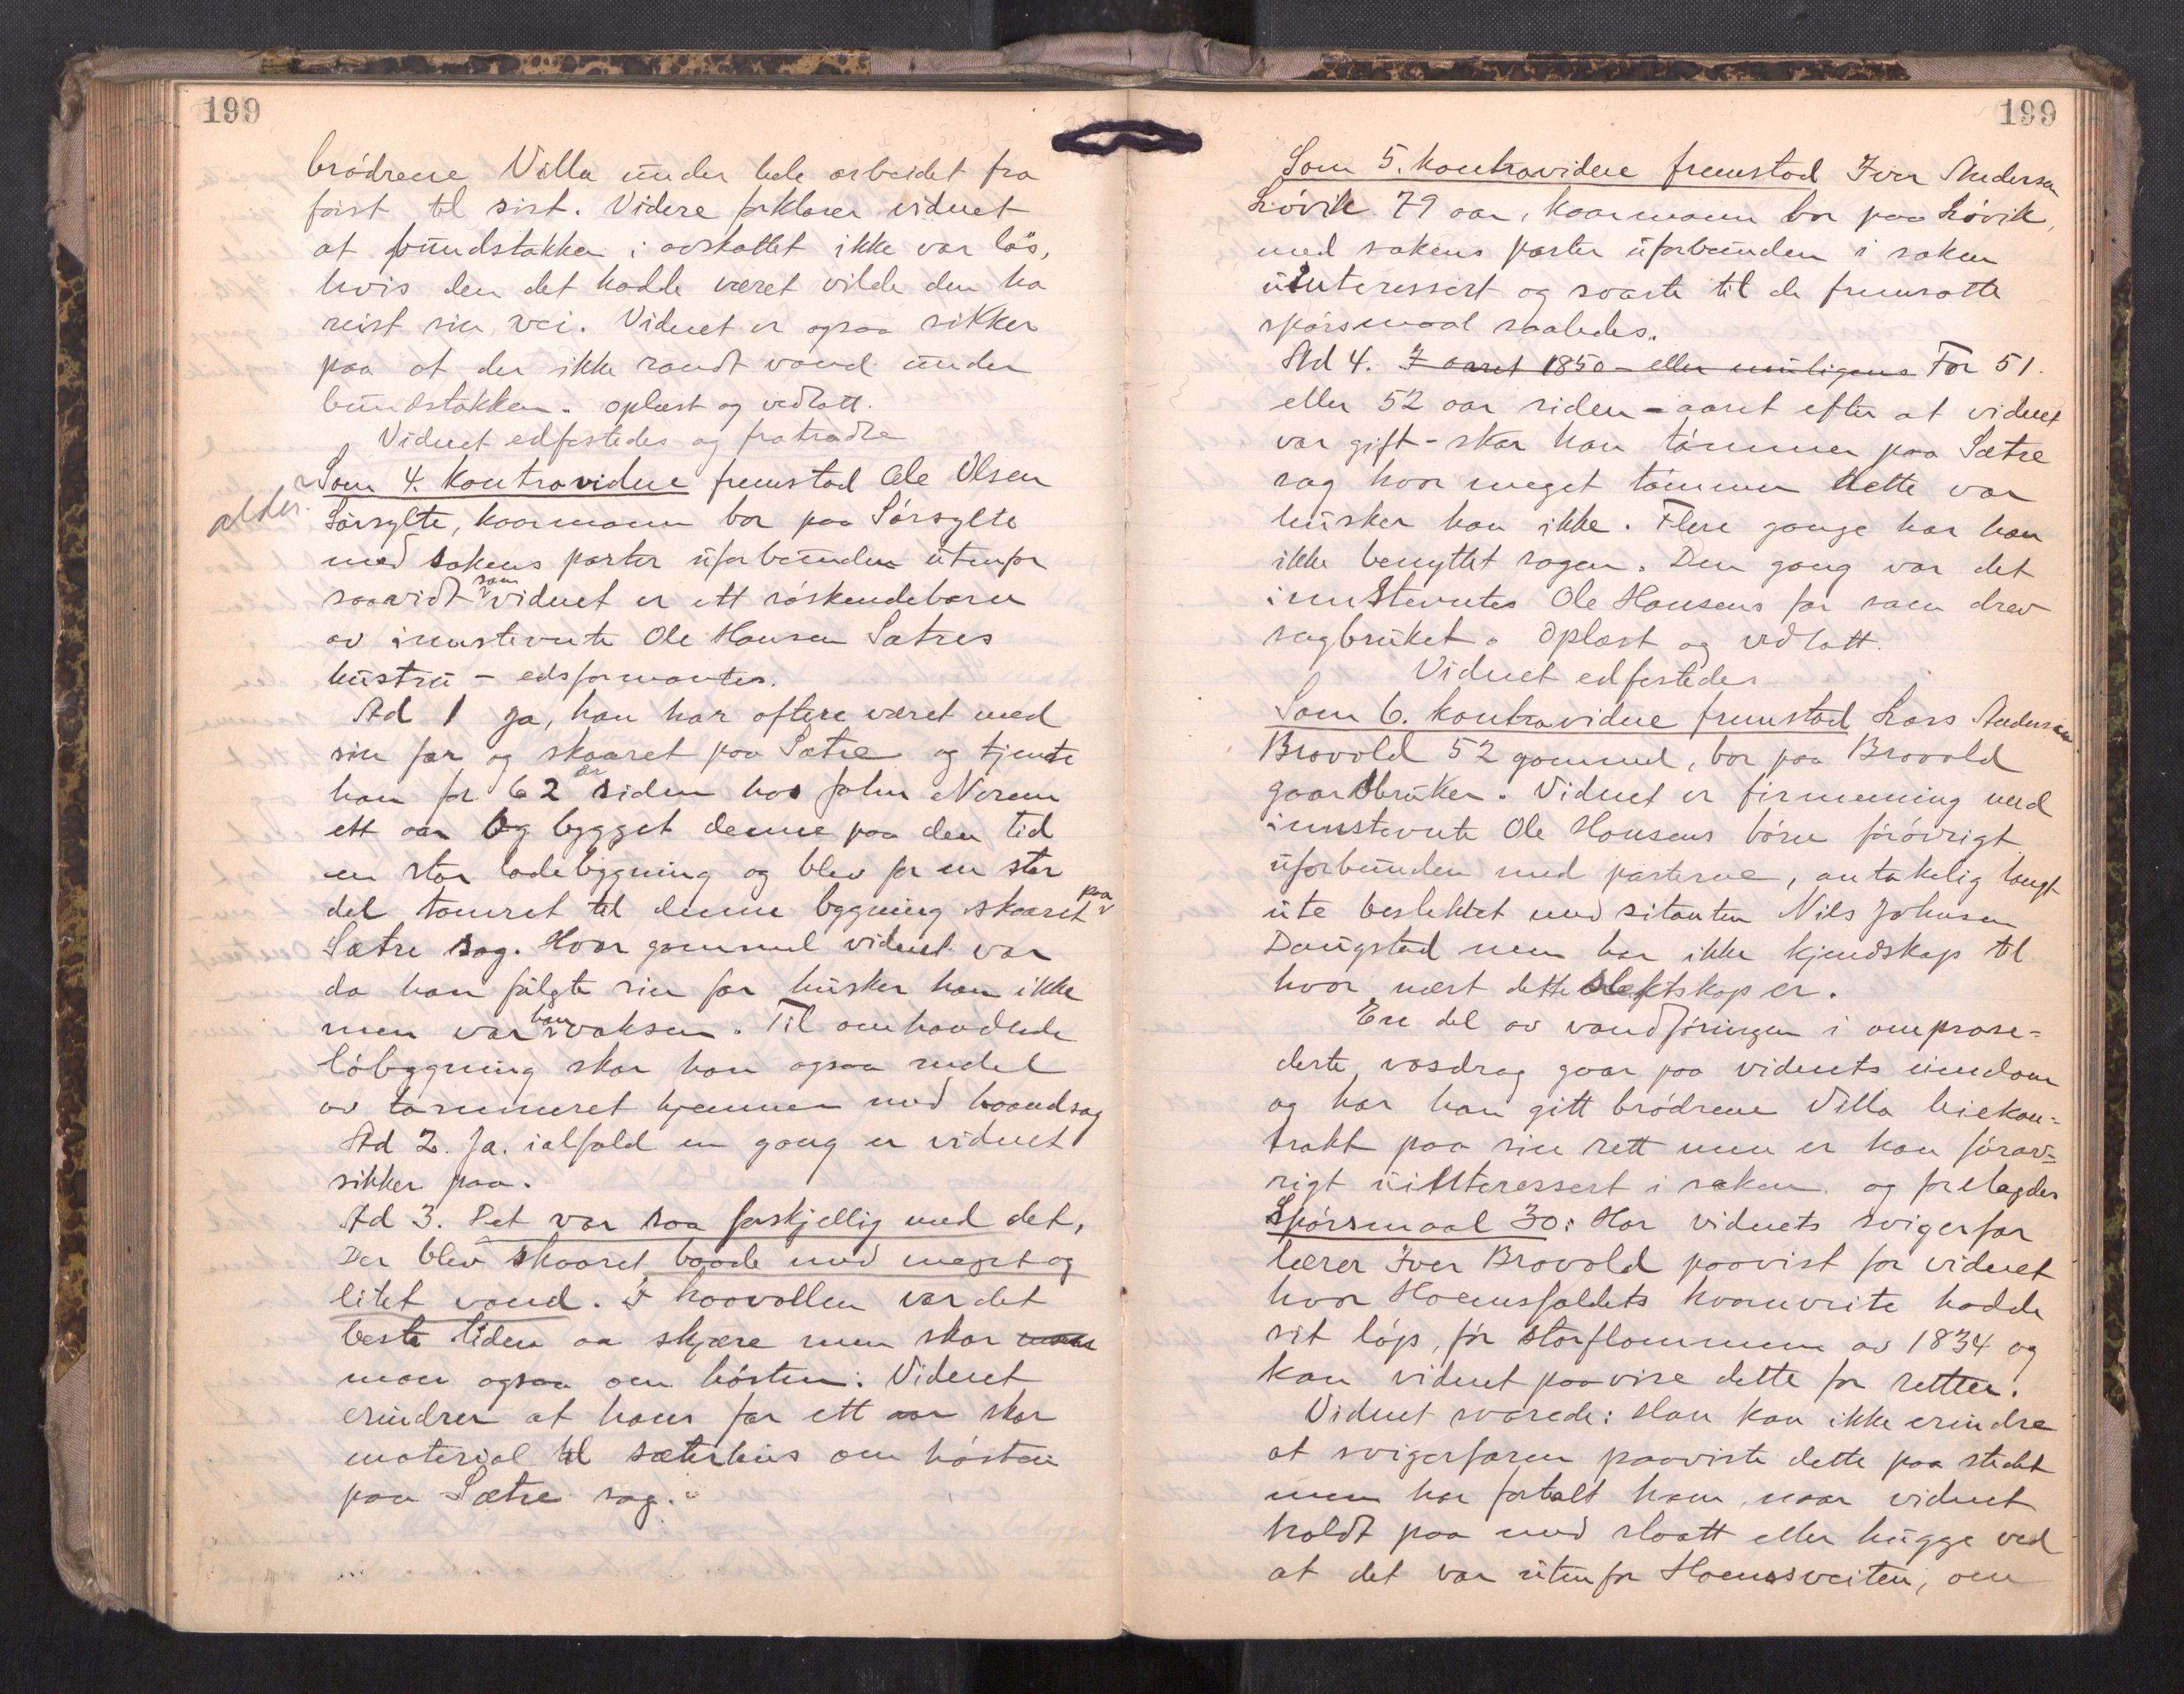 199
brödrene Villa under hele arbeidet fra
först til sist. Videre forklarer vidnet
at bundstokken i avskottet ikke var lös,
hvis den det hadde været vilde den ha
reist sin vei. Vidnet er ogsaa sikker
paa at der ikke randt vand under
bundstokken. oplæst og vedtatt.
Vidnet edfestedes og fratraadte
Som 4. kontravidne fremstod Ole Olsen
alder.
Sörsylte, kaarmann bor paa Sörsylte
med sakens parter uforbunden utenfor
saavidt som vidnet er ett söskendebarn
av innstevnte Ole Hansen Sætres
hustru - edsformantes.
Ad 1 ja, han har oftere været med
sin far og skaaret paa Sætre og tjente
han for 62 aar siden hos John Nerem
ett aar og bygget denne paa den tid
en stor ladebygning og blev for en stor
del tömret til denne bygning skaaret paa
Sætre sag. Hvor gammel vidnet var
da han fulgte sin far husker han ikke
men var han voksen. Til omhandlede
löbygning skar han ogsaa endel
av tömmeret hjemmen med haandsag
Ad 2. Ja. ialfald en gang er vidnet
sikker paa.
Ad 3. Det var saa forskjellig med det,
Der blev skaaret baade med meget og
litet vand. I haavollen var det
beste tiden aa skjære men skar
man ogsaa om hösten. Vidnet
erindrer at hans far ett aar skar
material til sæterhus om hösten
paa Sætre sag.
199
Som 5. kontravidne fremstod Iver Andersen
Lövik 79 aar, kaarmann bor paa Lövik,
med sakens parter uforbunden i saken
uinteressert og svarte til de fremsatte
spörsmaal saaledes.
Ad 4. I aaret 1850 - eller muligens For 51
eller 52 aar siden - aaret efter at vidnet
var gift - skar han tömmer paa Sætre
sag hvor meget tömmer dette var
husker han ikke. Flere gange har han
ikke benyttet sagen. Den gang var det
innstevntes Ole Hansens far som drev
sagbruket. Oplæst og vedtatt.
Vidnet edfestedes
Som 6. kontravidne fremstod Lars Andersen
Brovold 52 gammel, bor paa Brovold
gaardbruker. Vidnet er firmenning med
innstevnte Ole Hansens börn foróvrigt
uforbunden med parterne, antakelig langt
ute beslektet med sitanten Nils Johnsen
Daugstad men har ikke kjendskap til
hvor nært dette slektskap er.
En del av vandföringen i ompróse=
derte vasdrag gaar paa vidnets eiendom
og har han gitt brödrene Villa leiekon=
trakt paa sin rett men er han förav=
rigt uinteressert i saken og forelagdes
Spörsmaal 30: Har vidnets svigerfar
lærer Iver Brovold paavist for vidnet
hvor Hoemsfaldets kvarnveite hadde
sit löp, för storflommen av 1834 og
kan vidnet paavise dette for retten.
Vidnet svarede: Han kan ikke erindre
at svigerfaren paaviste dette paa stedet
men har fortalt ham, naar vidnet
holdt paa med slaatt eller hugge ved
at det var utenfor Hoemsveiten, om